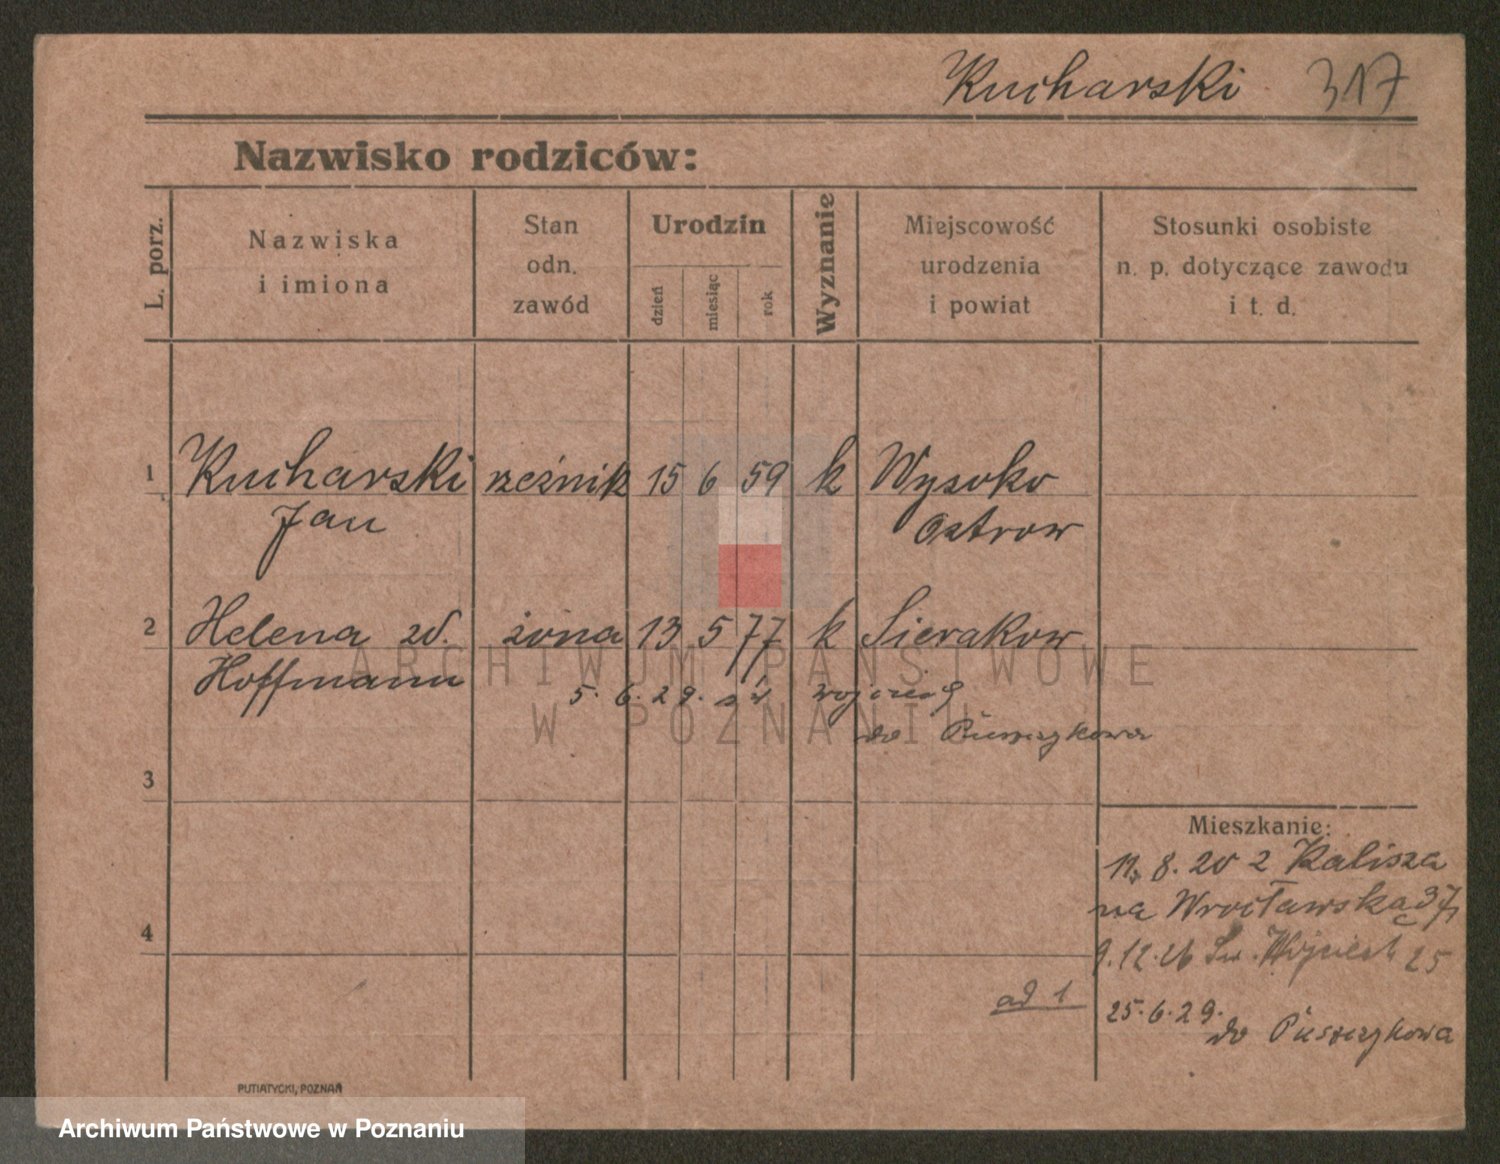 Kucharski 317
Nazwisko rodziców:
L. porz.
Nazwiska
i imiona
Stan
odn.
zawód
Urodzin
dzień
miesiąc
rok
Wyznanie
Miejscowość
urodzenia
i powiat
Stosunki osobiste
n. p. dotyczące zawodu
i t. d.
1 Kucharski rzeźnik 15 6 59 k Wysoko
Jan Ostrow
2 Helena żona 13 5 77 k Sierakow
Hoffmann
5. 6. 29. św Wojciech
do Puszczykowa
3
Mieszkanie:
8. 20 z Kalisza
na Wrocławską 37
4
9.12.26 Św. Wojciech 25
ad 1
25.6.29.
do Puszczykowa
PUTIATYCKI, POZNAŃ
ARCHIWUM PAŃSTWOWE
W POZNANIU
Archiwum Państwowe w Poznaniu